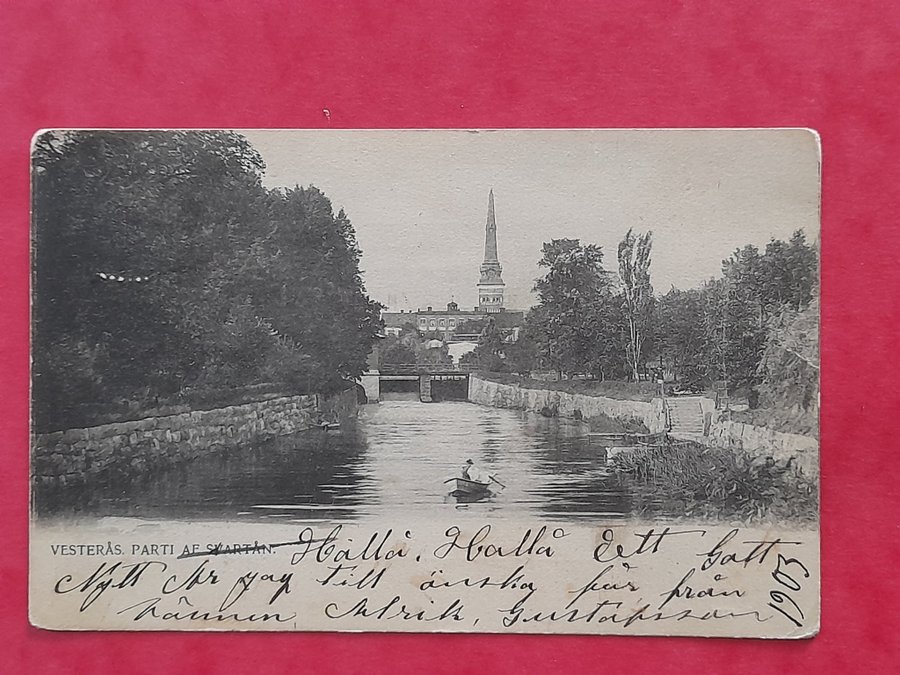 VESTERÅS. PARTI AF SVARTÅN.
Hallå, Hallå ett Gott
Nytt År jag till önska får från
Vännen Ulrik, Gustafsson
1903